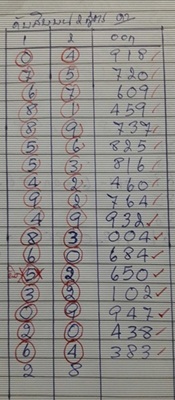 1 2 ออก
0 4 918
7 5 720
6 7 609
8 1 459
8 9 737
5 6 825
5 3 816
4 2 460
9 2 764
4 9 932
8 3 004
6 0 684
5 2 650
3 2 102
0 9 947
2 0 438
6 4 383
2 8